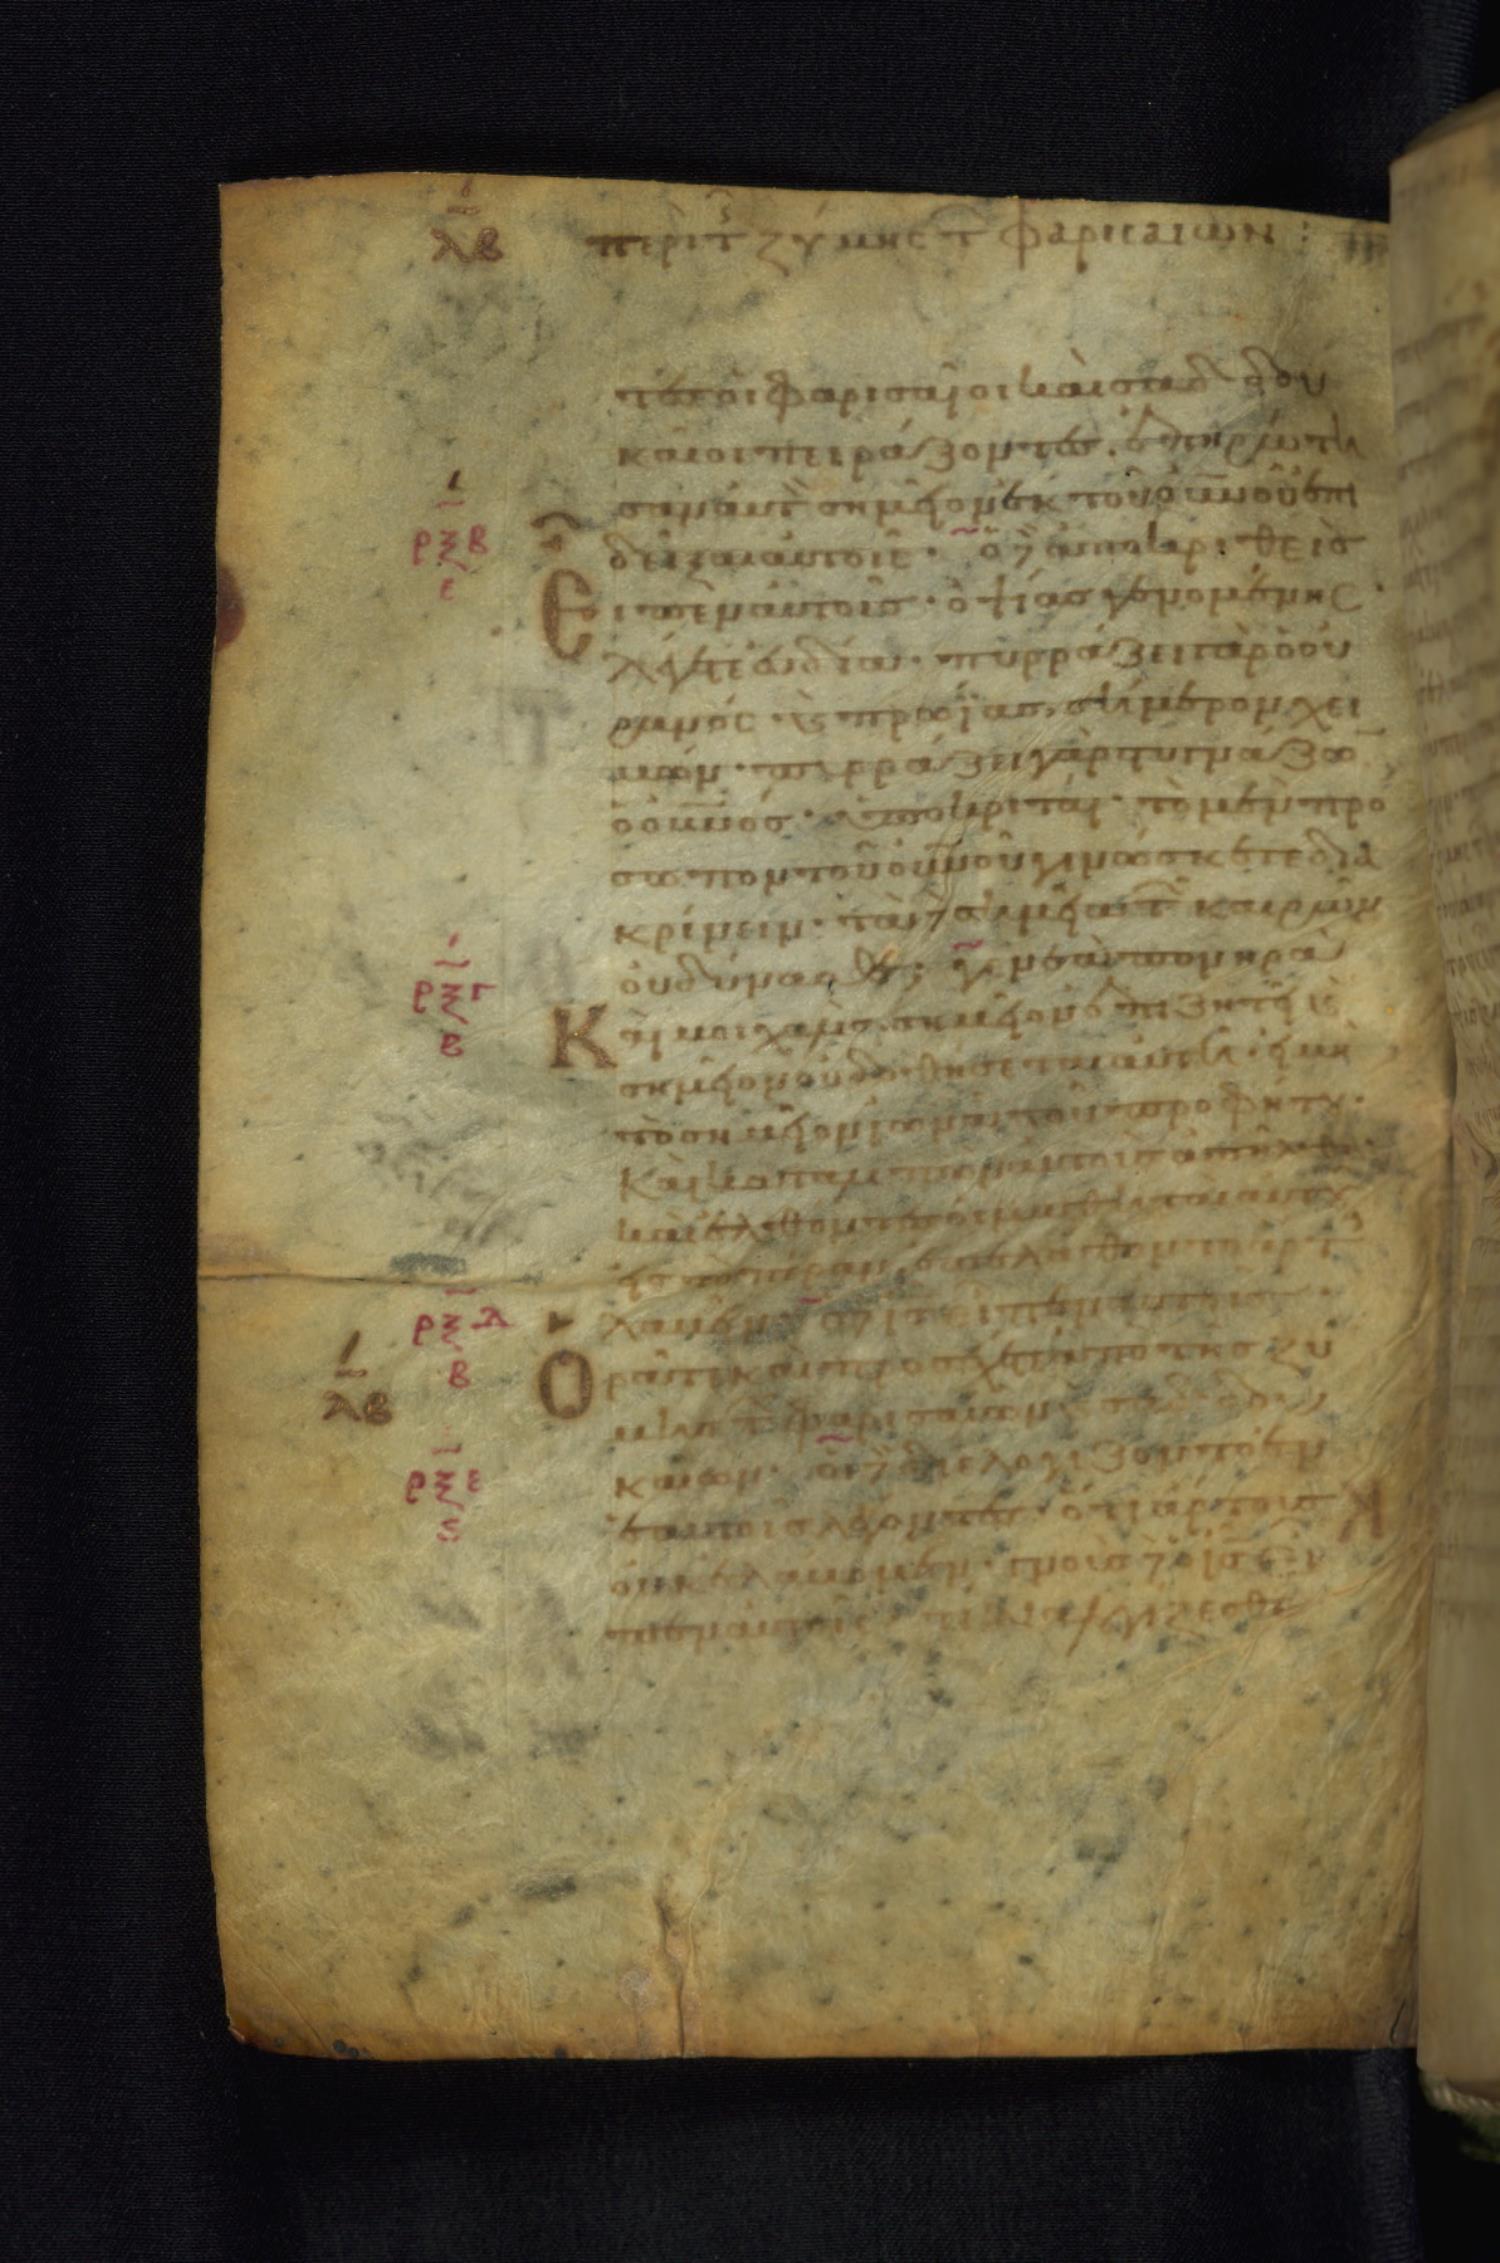 λβ περι τ ζύμης τ φαρισαιων :
τες οι φαρισαῖοι και σαδδου
καιοι πειράζοντες · ἐπηρώτη
σαν αυτ σημεῖον ἐκ τοῦ οὐνοῦ ἐπι
ρξβ
ε
δεῖξαι αυτοῖς · ὁ δ ἀποκριθεὶσ
Ειπεν αυτοῖσ · ὀψίασ γενομένης ·
λέγετε ευδία · πυρράζει γὰρ ὁ οὐ
ρανός · κ πρωΐασ σήμερον χει
μών · πυρράζει γὰρ στυγνάζω
ὁ οὐνός · ὑποκριταί · τὸ μὲν πρό
σωπον τοῦ οὐνοῦ γινώσκετε δια
κρίνειν · τὰ δ σημεῖα τ καιρῶν
ου γενεὰ πονηρὰ
ρξγ
β
Καὶ μοιχαλὶσ σημεῖον ἐπιζητεῖ κ
σημεῖον οὐ δοθήσεται αυτῆ · εἰ μὴ
τὸ σημεῖον ἰωνᾶ τοῦ προφήτου ·
Καὶ καταλιπὼν αυτοὺσ ἀπῆλθε ·
καὶ ἐλθόντες οἱ μαθηταὶ αυτοῦ
εἰσ τὸ πέραν ἐπελάθοντο ἄρτ
λαβεῖν · ὁ δ ἰσ εἶπεν αυτοῖσ ·
ρξδ
β
λβ
Ορᾶτε καὶ προσέχετε ἀπὸ τῆσ ζύ
μησ τ φαρισαίων κ σαδδου
καίων · οἱ δ διελογίζοντο ἐν
ρξε
ς
ἑαυτοῖσ λέγοντες · ὅτι ἄρτουσ
οὐκ ἐλάβομεν · γνοὺσ δ ὁ ἰσ εἶ
πεν αυτοῖς · τί διαλογίζεσθε